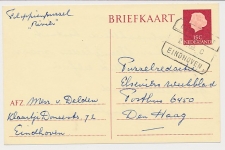 Filippinepuzzel
"Rivier"
BRIEFKAART
15 C
NEDERLAND
EINDHOVEN
AFZ. Mevr. v. Delden
Klaartje Donzestr. 72
Eindhoven
Puzzelredactie
Elseviers weekblad
Postbus 6400
Den Haag